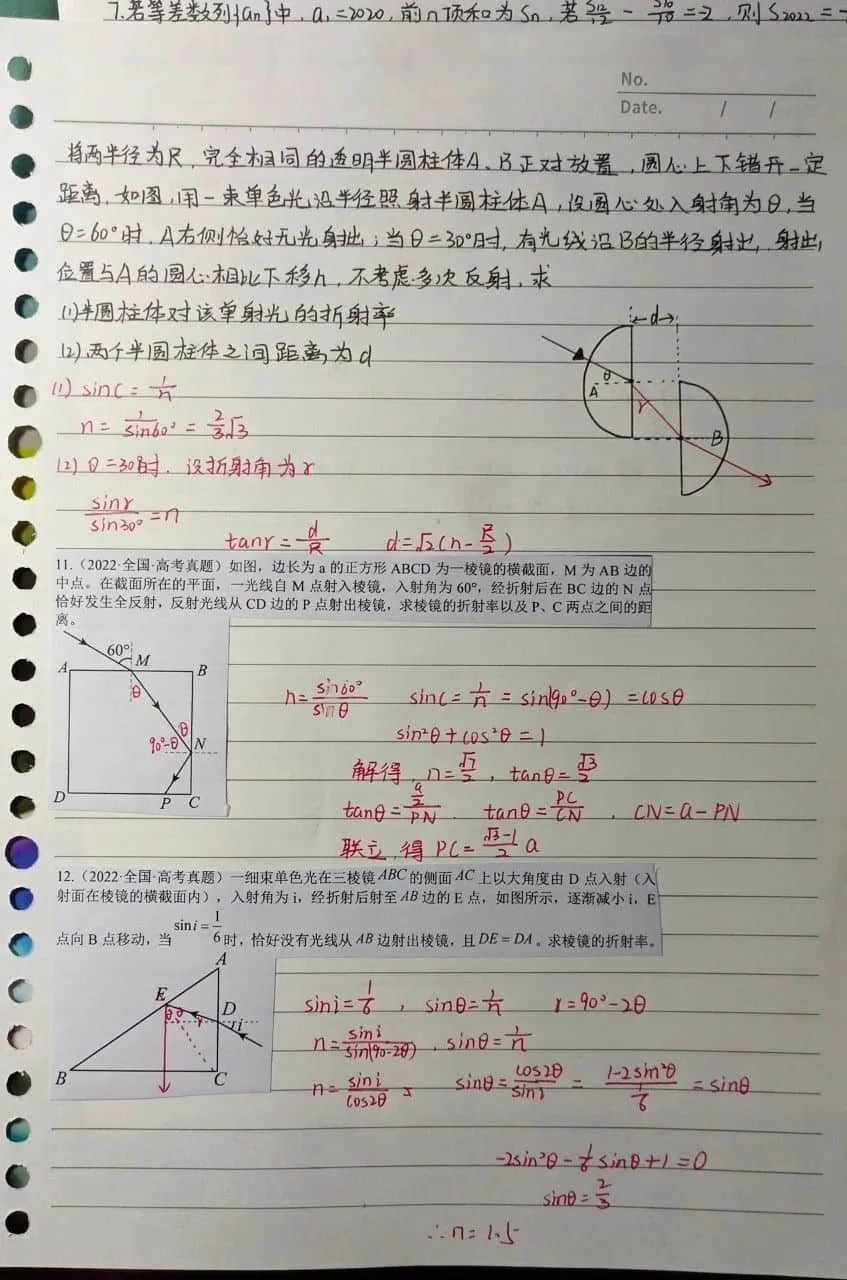 7.若等差数列{an}中, a₁=2020, 前n项和为Sn, 若 S12/12 - S10/10 = 2, 则S2022=
No.
Date. / /
将两半径为R, 完全相同的透明半圆柱体A、B正对放置, 圆心上下错开一定
距离, 如图, 用一束单色光沿半径照射半圆柱体A, 设圆心处入射角为θ, 当
θ=60°时, A右侧恰好无光射出; 当θ=30°时, 有光线沿B的半径射出, 射出
位置与A的圆心相比下移h, 不考虑多次反射, 求
(1)半圆柱体对该单射光的折射率
(2)两个半圆柱体之间距离为d
d
θ
A
r
B
(1) sinC = 1/n
n = 1/sin60° = 2/3 √3
(2) θ=30°时, 设折射角为r
sinr/sin30° = n
tanr = d/R d=√2(h-R/2)
11.（2022·全国·高考真题）如图，边长为 a 的正方形 ABCD 为一棱镜的横截面，M 为 AB 边的
中点。在截面所在的平面，一光线自 M 点射入棱镜，入射角为 60°，经折射后在 BC 边的 N 点
恰好发生全反射，反射光线从 CD 边的 P 点射出棱镜，求棱镜的折射率以及 P、C 两点之间的距
离。
60°
A M B
θ
θ
90°-θ N
D P C
n = sin60°/sinθ sinC = 1/n = sin(90°-θ) = cosθ
sin²θ+cos²θ=1
解得, n=√7/2, tanθ=√3/2
tanθ = a/2/PN, tanθ = PC/CN, CN=a-PN
联立, 得 PC = √3-1/2 a
12.（2022·全国·高考真题）一细束单色光在三棱镜 ABC 的侧面 AC 上以大角度由 D 点入射（入
射面在棱镜的横截面内），入射角为 i，经折射后射至 AB 边的 E 点，如图所示，逐渐减小 i，E
点向 B 点移动，当 sin i = 1/6 时，恰好没有光线从 AB 边射出棱镜，且 DE = DA。求棱镜的折射率。
A
E
θ θ
D
r i
B C
sini = 1/6, sinθ = 1/n r=90°-2θ
n = sini/sin(90-2θ), sinθ = 1/n
n = sini/cos2θ sinθ = cos2θ/sini = 1-2sin²θ/1/6 = sinθ
-2sin²θ - 1/6 sinθ + 1 = 0
sinθ = 2/3
∴n=1.5